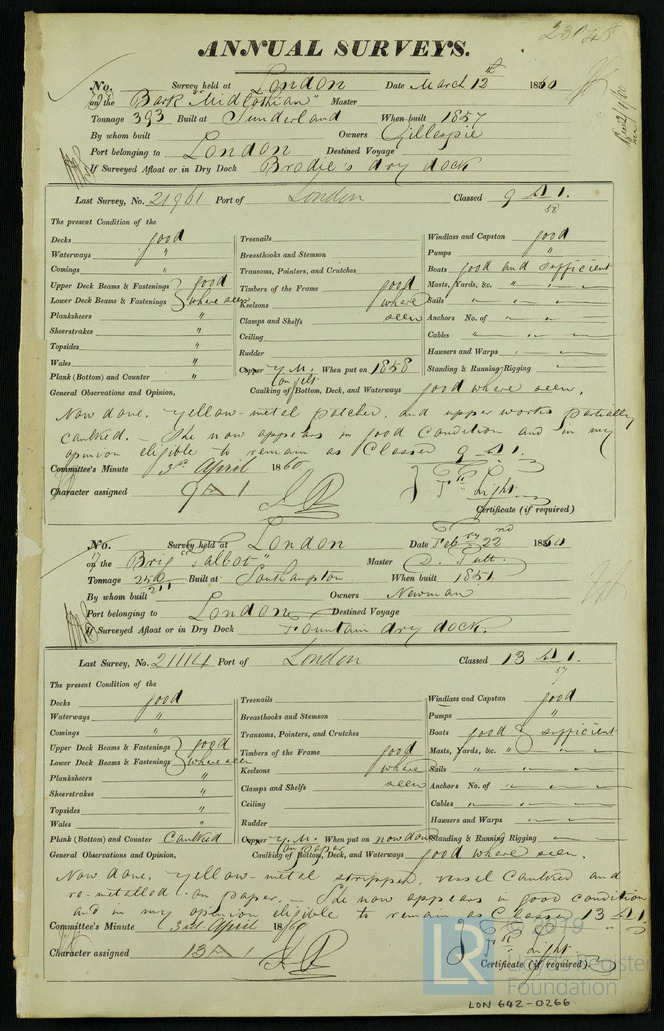 ANNUAL SURVEYS.
No. Survey held at London Date March 12th 1860
on the Bark "Midlothian" Master
Tonnage 393 Built at Sunderland When built 1857
By whom built Owners Gillespie
Port belonging to London Destined Voyage
If Surveyed Afloat or in Dry Dock Brodie's dry dock
Last Survey, No. 21961 Port of London Classed 9 A 1.
58
The present Condition of the
Decks good Treenails Windlass and Capstan good
Waterways " Breasthooks and Stemson Pumps "
Comings " Transoms, Pointers, and Crutches Boats good and sufficient
Upper Deck Beams & Fastenings good Timbers of the Frame good Masts, Yards, &c. " "
Lower Deck Beams & Fastenings where seen Keelsons where Sails " "
Planksheers " Clamps and Shelfs seen Anchors No. of " "
Sheerstrakes " Ceiling Cables " "
Topsides " Rudder Hawsers and Warps
Wales " Copper Y.M. When put on 1858 Standing & Running Rigging
Plank (Bottom) and Counter " on felt
General Observations and Opinion, Caulking of Bottom, Deck, and Waterways good where seen.
Now done. Yellow-metal patched, and upper works partially
caulked. — She now appears in good condition and in my
opinion eligible to remain as Classed 9 A 1.
Committee's Minute 3rd April 1860
Character assigned 9 A 1
Light
Certificate (if required)
No. Survey held at London Date Feb ry 22nd 1860
on the Brig "Talbot" Master D. Tutt.
Tonnage 250 Built at Southampton When built 1851
211
By whom built Owners Newman
Port belonging to London Destined Voyage
If Surveyed Afloat or in Dry Dock Fountain dry dock.
Last Survey, No. 21114 Port of London Classed 13 A 1.
57
The present Condition of the
Decks good Treenails Windlass and Capstan good
Waterways " Breasthooks and Stemson Pumps "
Comings " Transoms, Pointers, and Crutches Boats good & sufficient
Upper Deck Beams & Fastenings good Timbers of the Frame good Masts, Yards, &c. "
Lower Deck Beams & Fastenings where seen Keelsons where Sails " "
Planksheers " Clamps and Shelfs seen Anchors No. of "
Sheerstrakes " Ceiling Cables "
Topsides " Rudder Hawsers and Warps
Wales " Copper Y.M. When put on now done Standing & Running Rigging
Plank (Bottom) and Counter Caulked on paper
General Observations and Opinion, Caulking of Bottom, Deck, and Waterways good where seen.
Now done. Yellow-metal stripped, vessel caulked and
re-metalled on paper. — She now appears in good condition
and in my opinion eligible to remain as Classed 13 A 1
Committee's Minute 3rd April 1860
Character assigned 13 A 1
Light
Certificate (if required)
LR © 2019
Lloyd's Register
Foundation
LON 642-0266